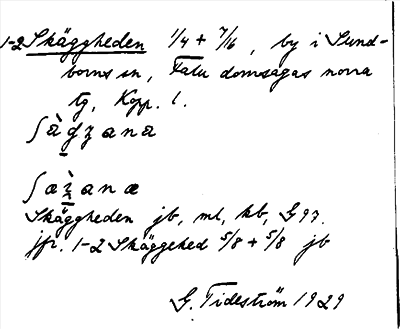 1-2 Skäggheden 1/4 + 7/16, by i Sund-
borns sn, Falu domsagas norra
tg, Kopp. l.
ʃägzana
ʃæzanæ
Skäggheden jb, ml, kb, G93.
jfr. 1-2 Skäggehed 5/8 + 5/8 jb
G. Tideström 1929